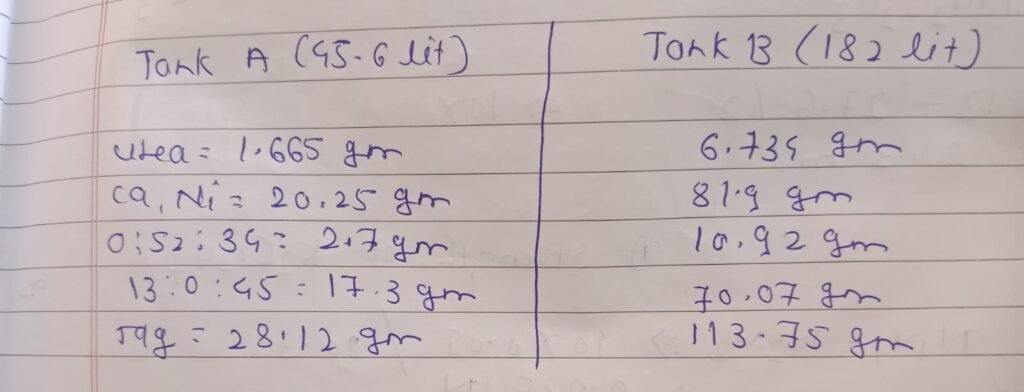 Tank A (45.6 lit) Tank B (182 lit)
urea = 1.665 gm 6.734 gm
ca, Ni = 20.25 gm 81.9 gm
0:52:34 = 2.7 gm 10.92 gm
13:0:45 = 17.3 gm 70.07 gm
= 28.12 gm 113.75 gm